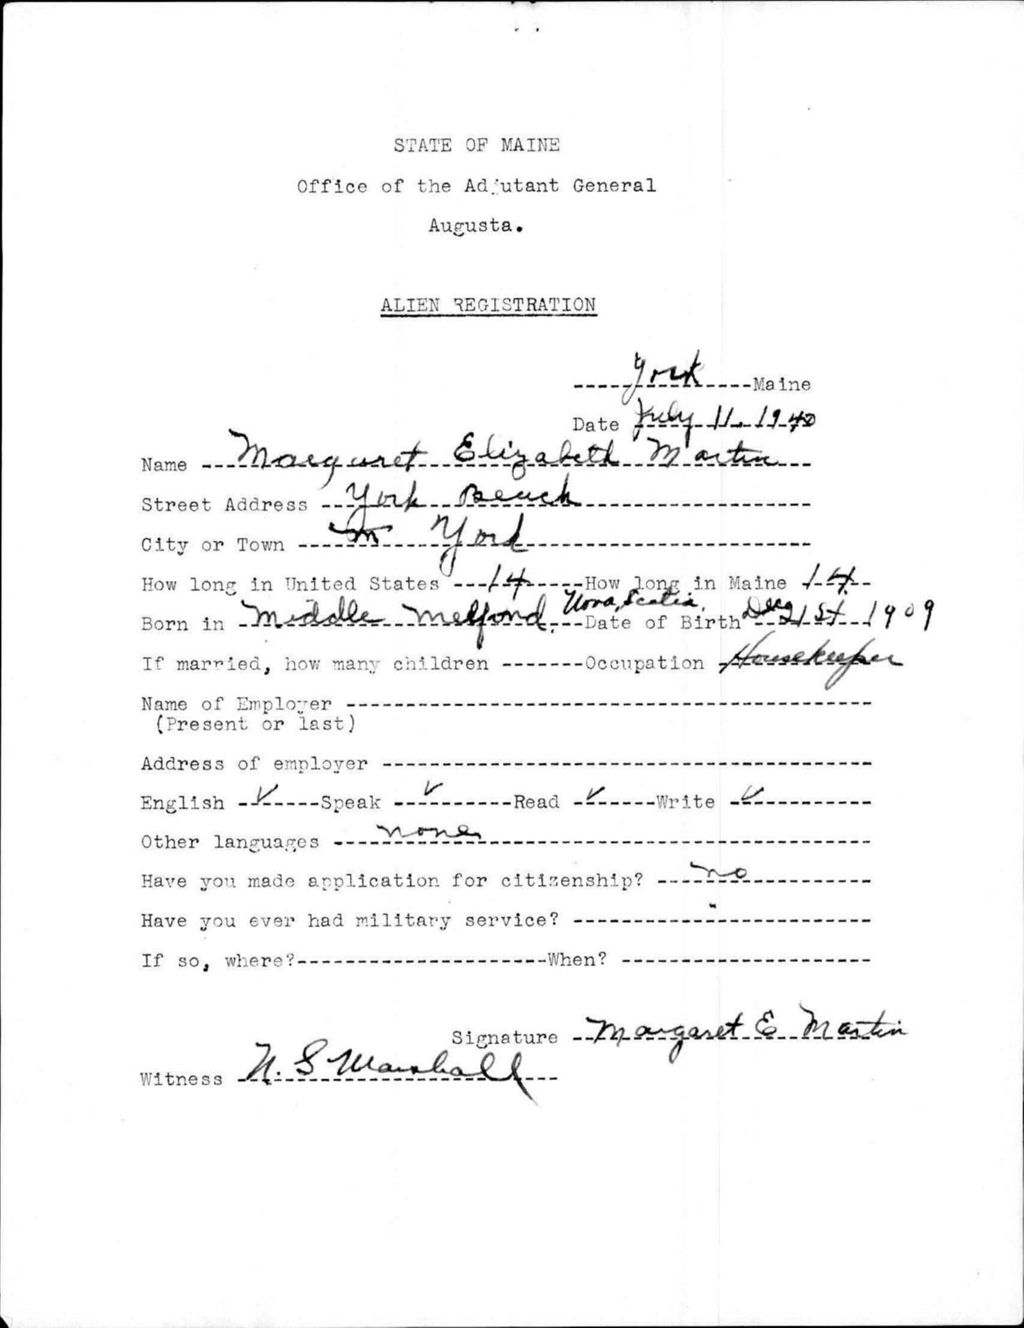 STATE OF MAINE
Office of the Adjutant General
Augusta.
ALIEN REGISTRATION
York Maine
Date July 11, 1940
Name Margaret Elizabeth Martin
Street Address York Beach
City or Town York
How long in United States 14 How long in Maine 14
Born in Middle Melford, Nova Scotia, Date of Birth Dec 21st 1909
If married, how many children Occupation Housekeeper
Name of Employer
(Present or last)
Address of employer
English ✓ Speak ✓ Read ✓ Write ✓
Other languages none
Have you made application for citizenship? no
Have you ever had military service?
If so, where? When?
Signature Margaret E Martin
Witness N. S Marshall